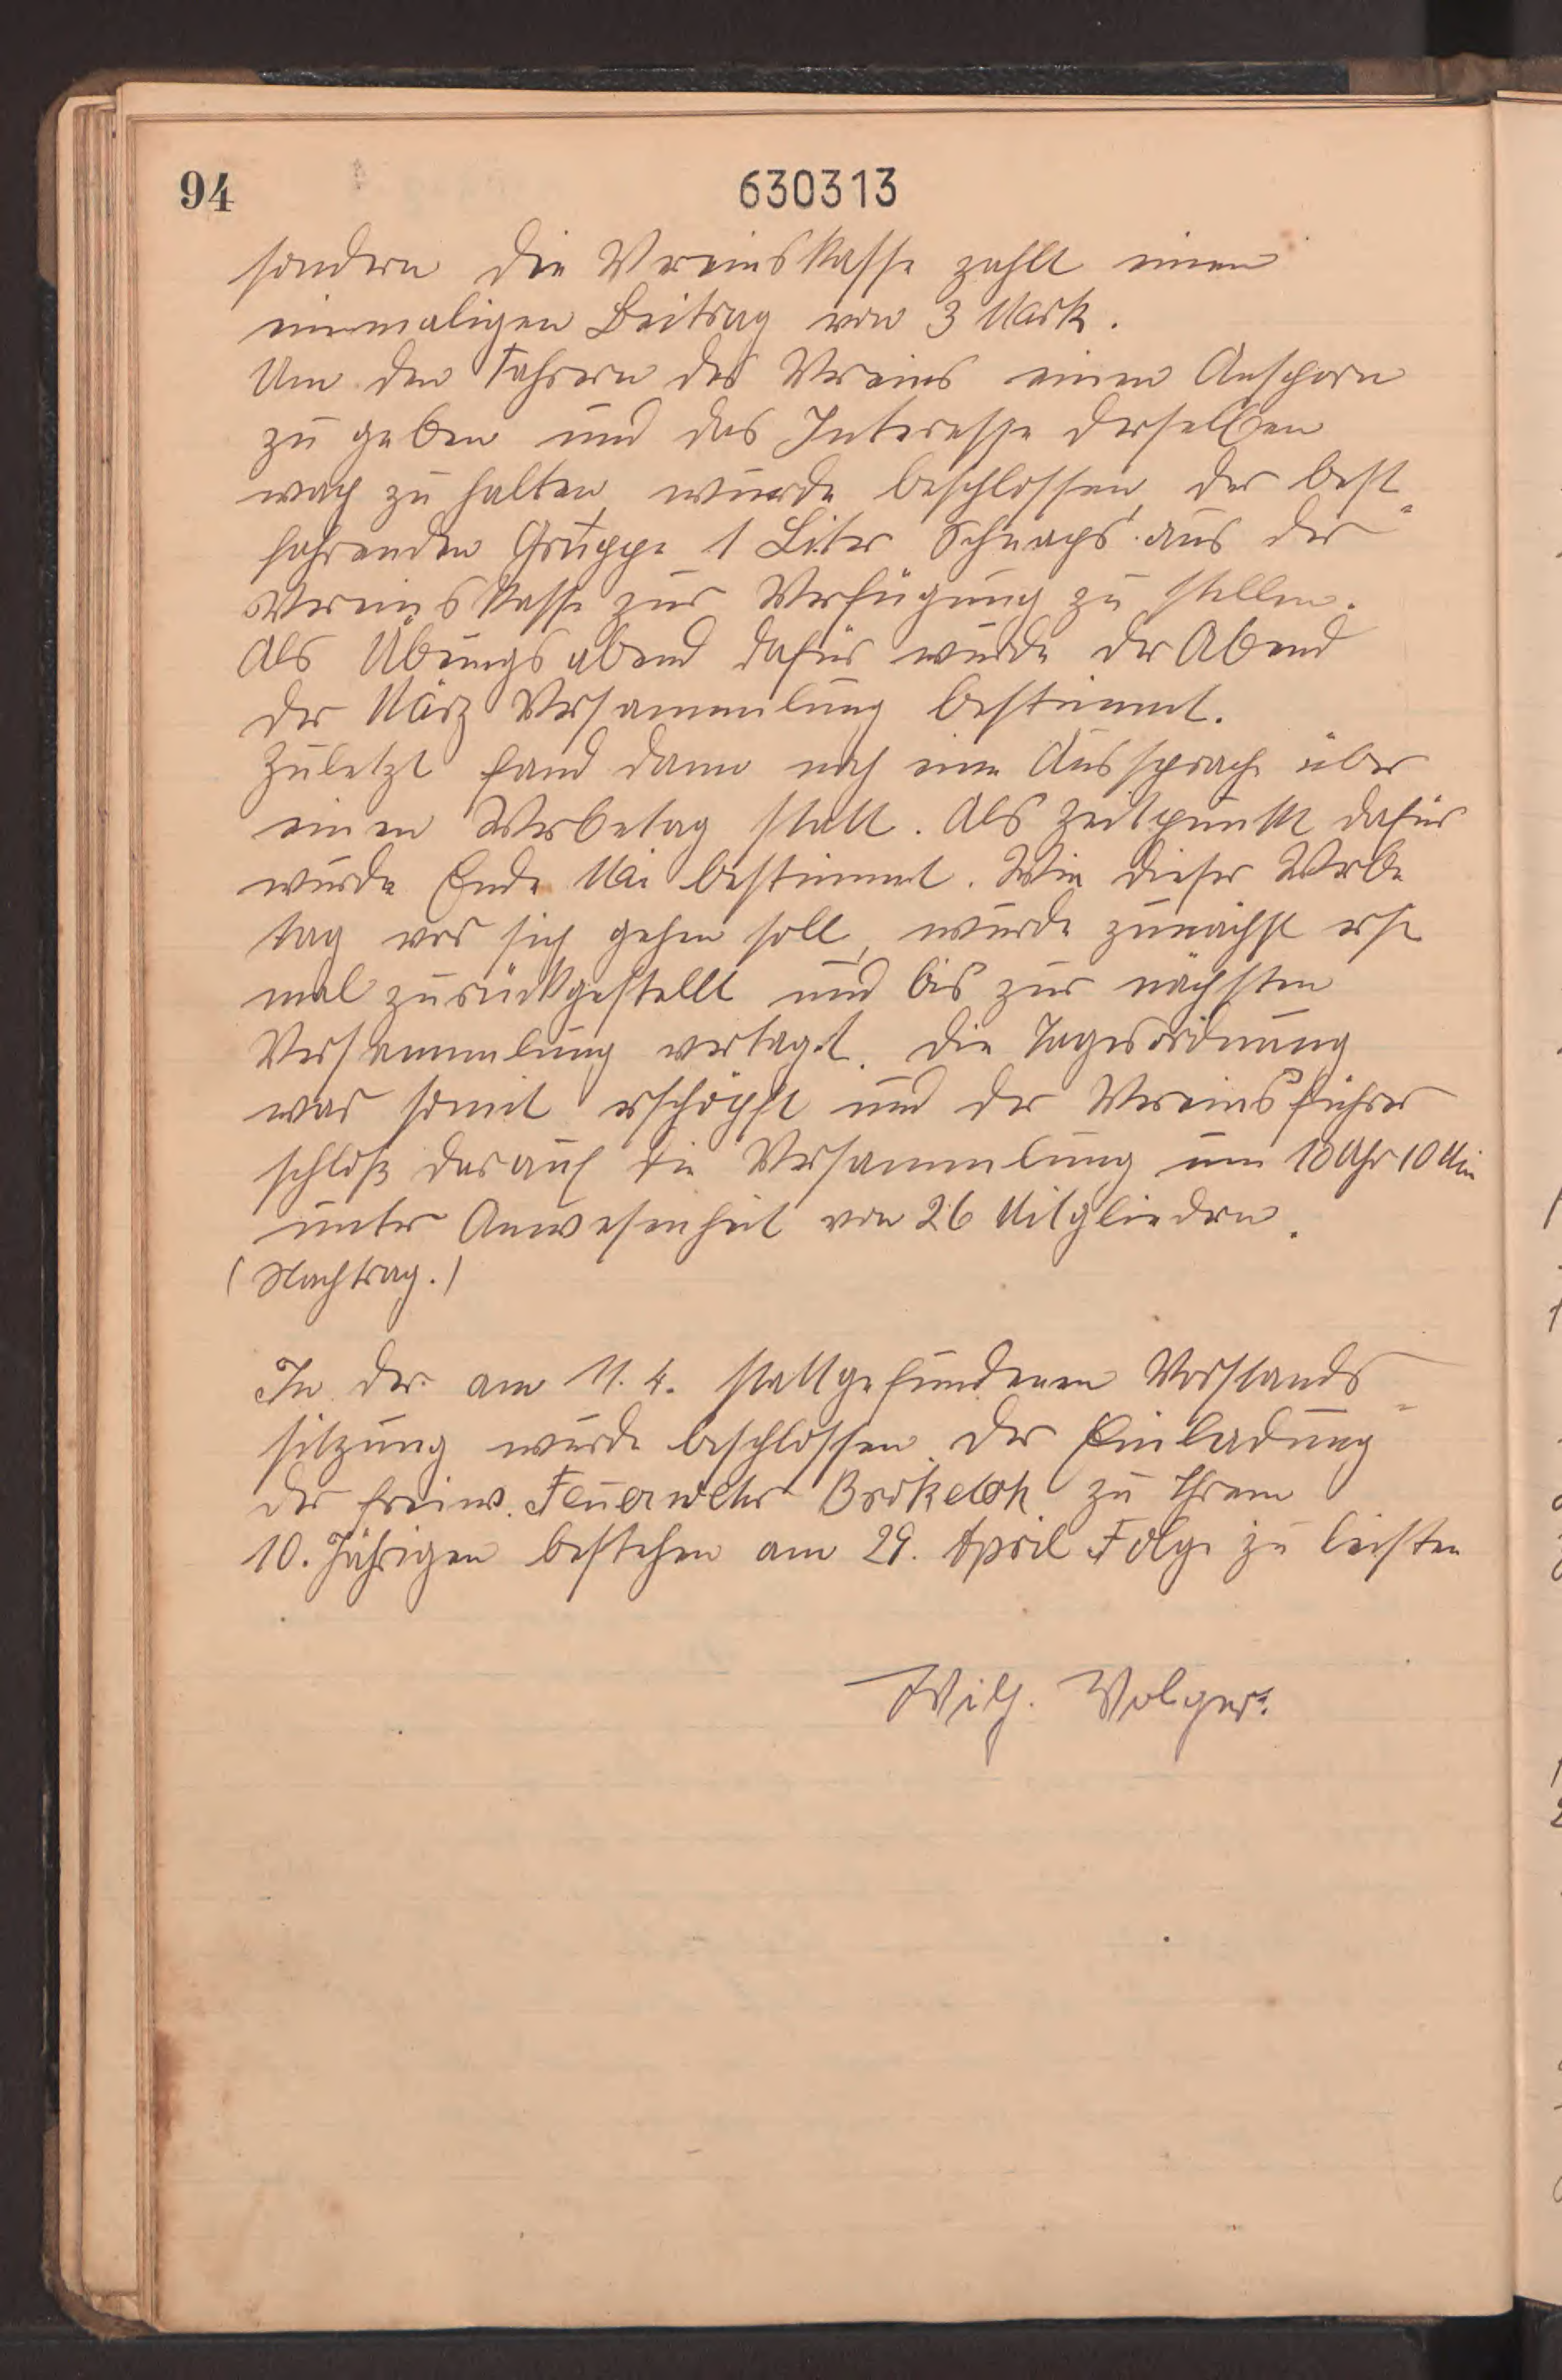 94
630313
sondern die Vereinskasse zahlt einen
einmaligen Beitrag von 3 Mark.
Um den Fahrern des Vereins einen Ansporn
zu geben und das Interesse derselben
wach zu halten, wurde beschlossen, der best-
fahrenden Gruppe 1 Liter Schnaps aus der
Vereinskasse zur Verfügung zu stellen.
Als Übungsabend dafür wurde der Abend
der März Versammlung bestimmt.
Zuletzt fand dann noch eine Aussprache über
einen Werbetag statt. Als Zeitpunkt dafür
wurde Ende Mai bestimmt. Wie dieser Werbe
tag vor sich gehen soll, wurde zunächst erst
mal zurückgestellt und bis zur nächsten
Versammlung vertagt. Die Tagesordnung
war somit erschöpft und der Vereinsführer
schloß darauf die Versammlung um 10 Uhr 10 Min
unter Anwesenheit von 26 Mitgliedern.
(Nachtrag.)
In der am 11. 4. stattgefundenen Vorstands-
sitzung wurde beschlossen der Einladung
der freiw. Feuerwehr Brokeloh zu Ihrem
10. Jährigen bestehen am 29. April Folge zu leisten
Wilh. Volger.